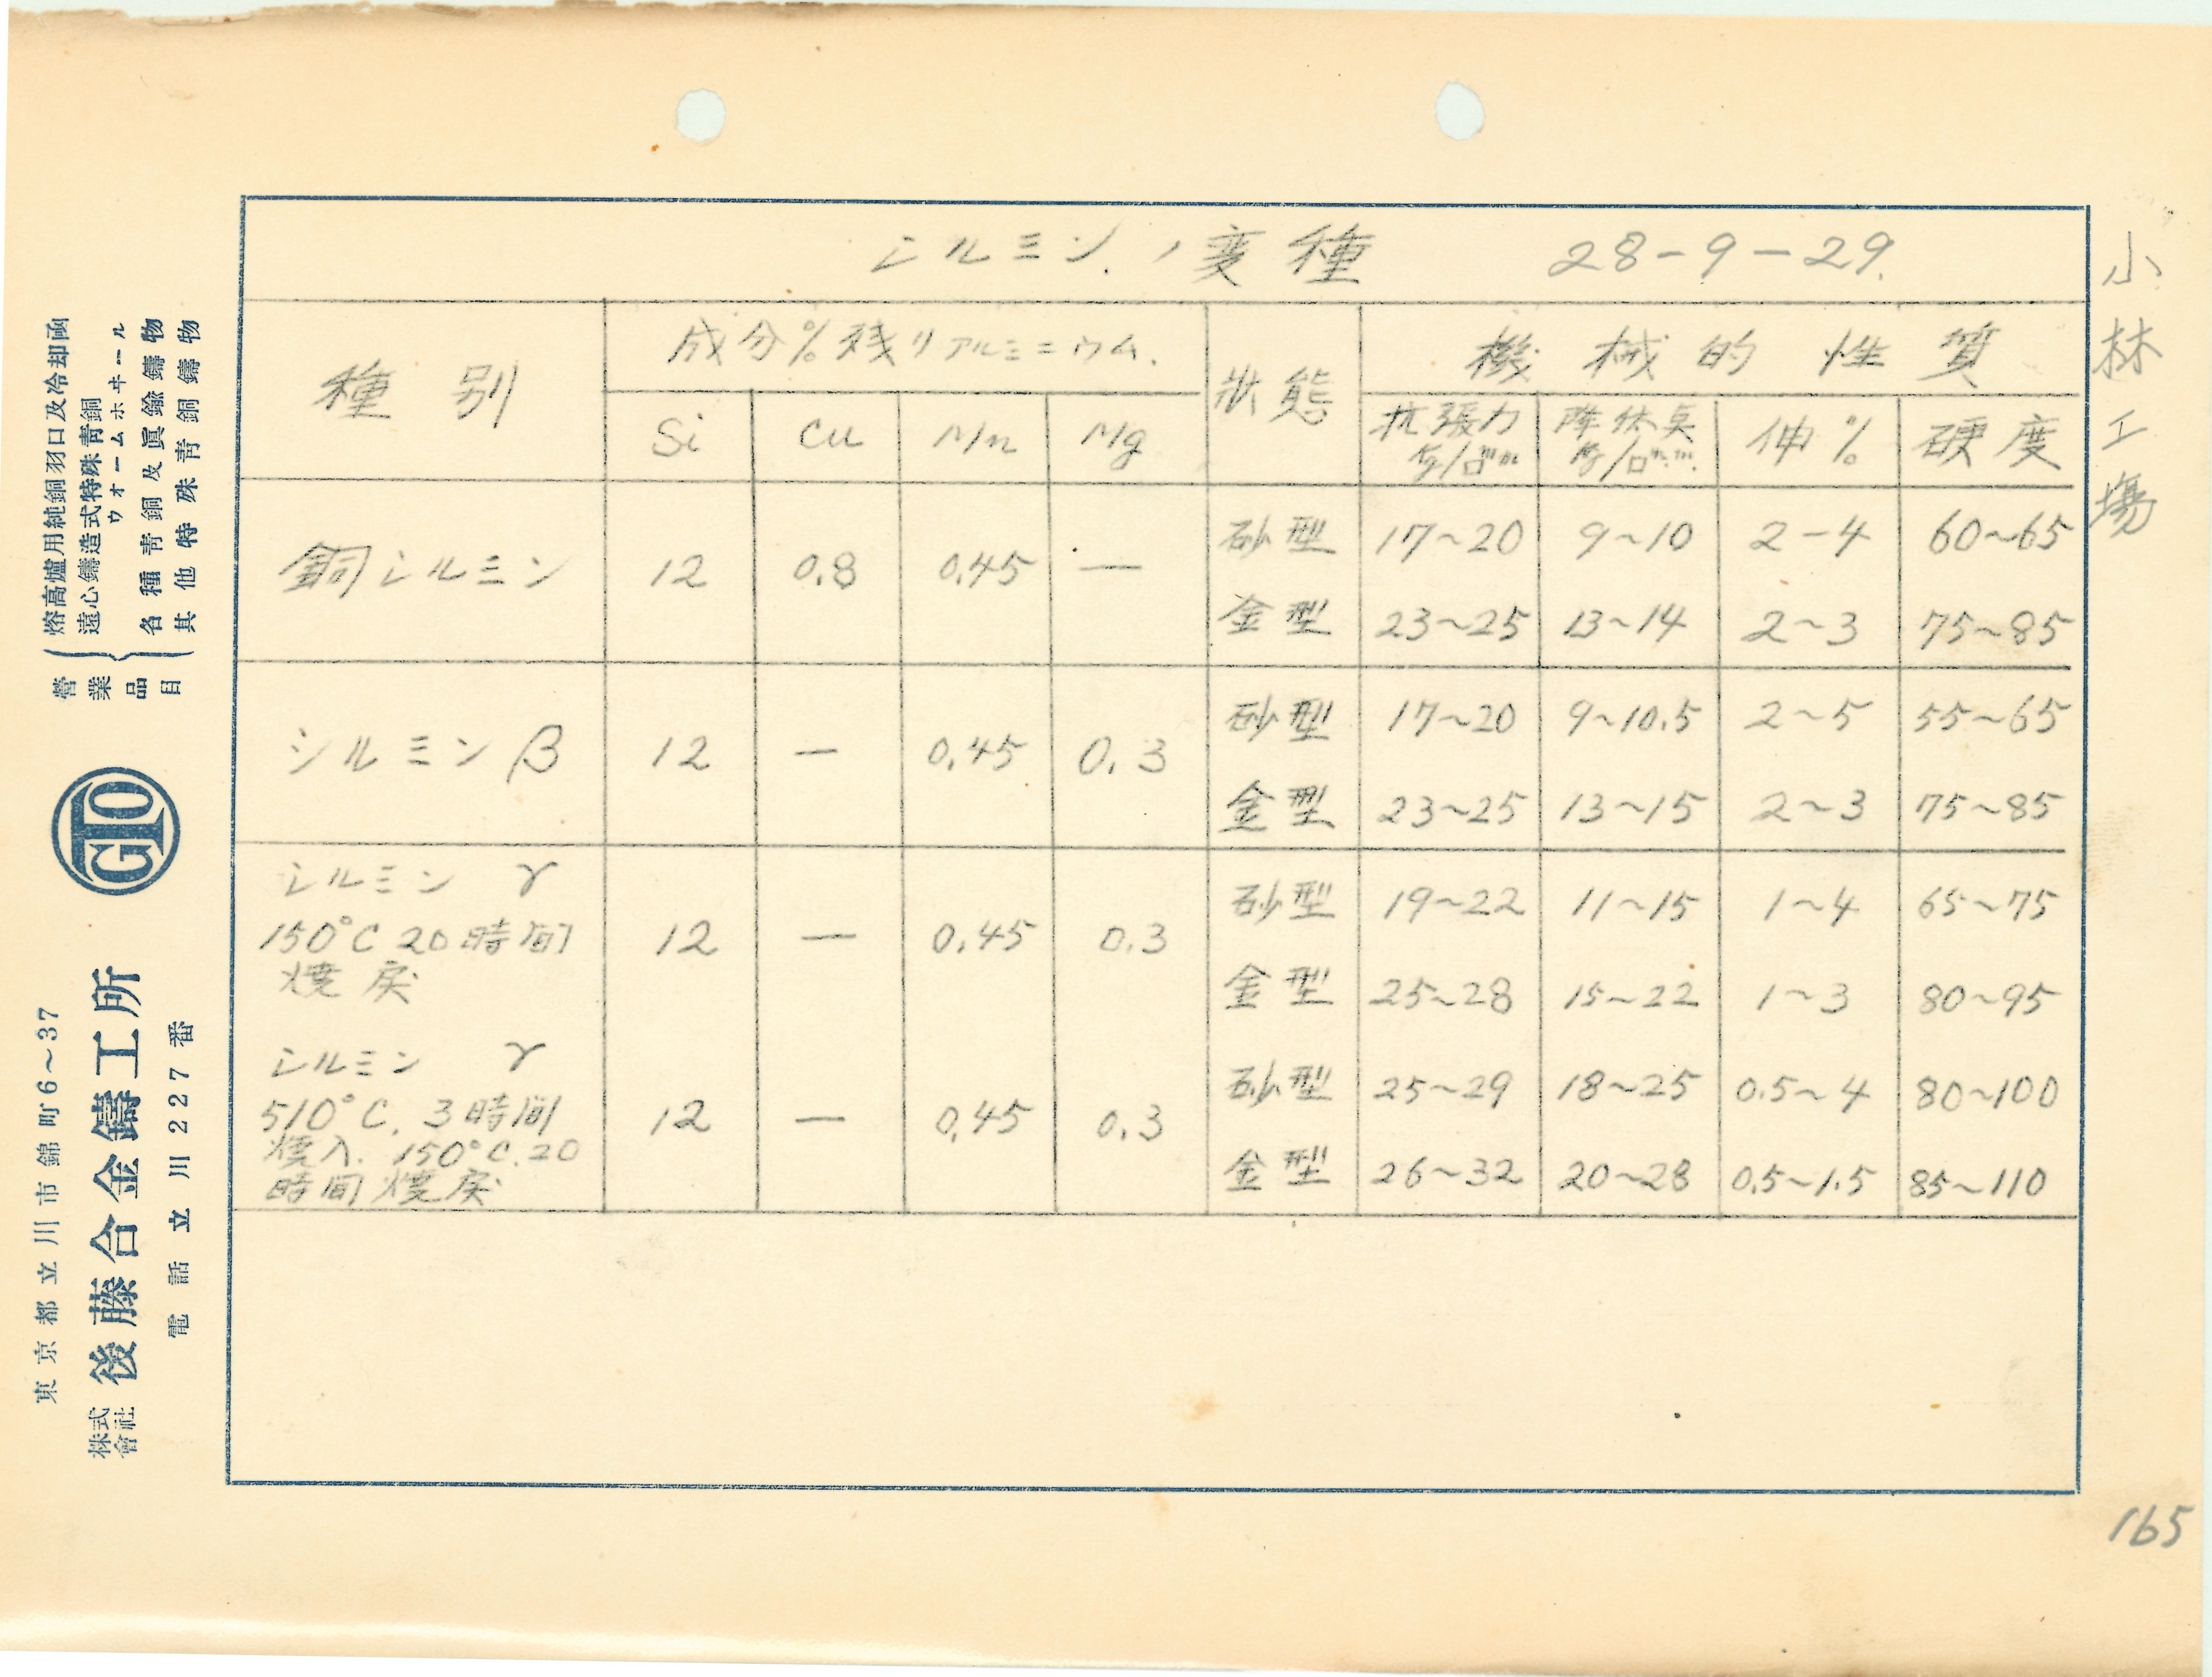 シルミンノ変種 28-9-29.
小林工場
種別 成分%残リアルミニウム. 状態 機械的性質
Si Cu Mn Mg 抗張力 降伏点 伸% 硬度
銅シルミン 12 0.8 0.45 — 砂型 17~20 9~10 2-4 60~65
金型 23~25 13~14 2~3 75~85
シルミンβ 12 — 0.45 0.3 砂型 17~20 9~10.5 2~5 55~65
金型 23~25 13~15 2~3 75~85
シルミン γ
150°C 20時間
焼戻
12 — 0.45 0.3 砂型 19~22 11~15 1~4 65~75
金型 25~28 15~22 1~3 80~95
シルミン γ
510°C. 3時間
焼入. 150°C.20
時間焼戻
12 — 0.45 0.3 砂型 25~29 18~25 0.5~4 80~100
金型 26~32 20~28 0.5~1.5 85~110
165
營業品目
熔高爐用純銅羽口及冷却函
遠心鑄造式特殊靑銅
ウォームホヰール
各種靑銅及眞鍮鑄物
其他特殊靑銅鑄物
GTO
東京都立川市錦町6~37
株式會社 後藤合金鑄工所
電話立川227番